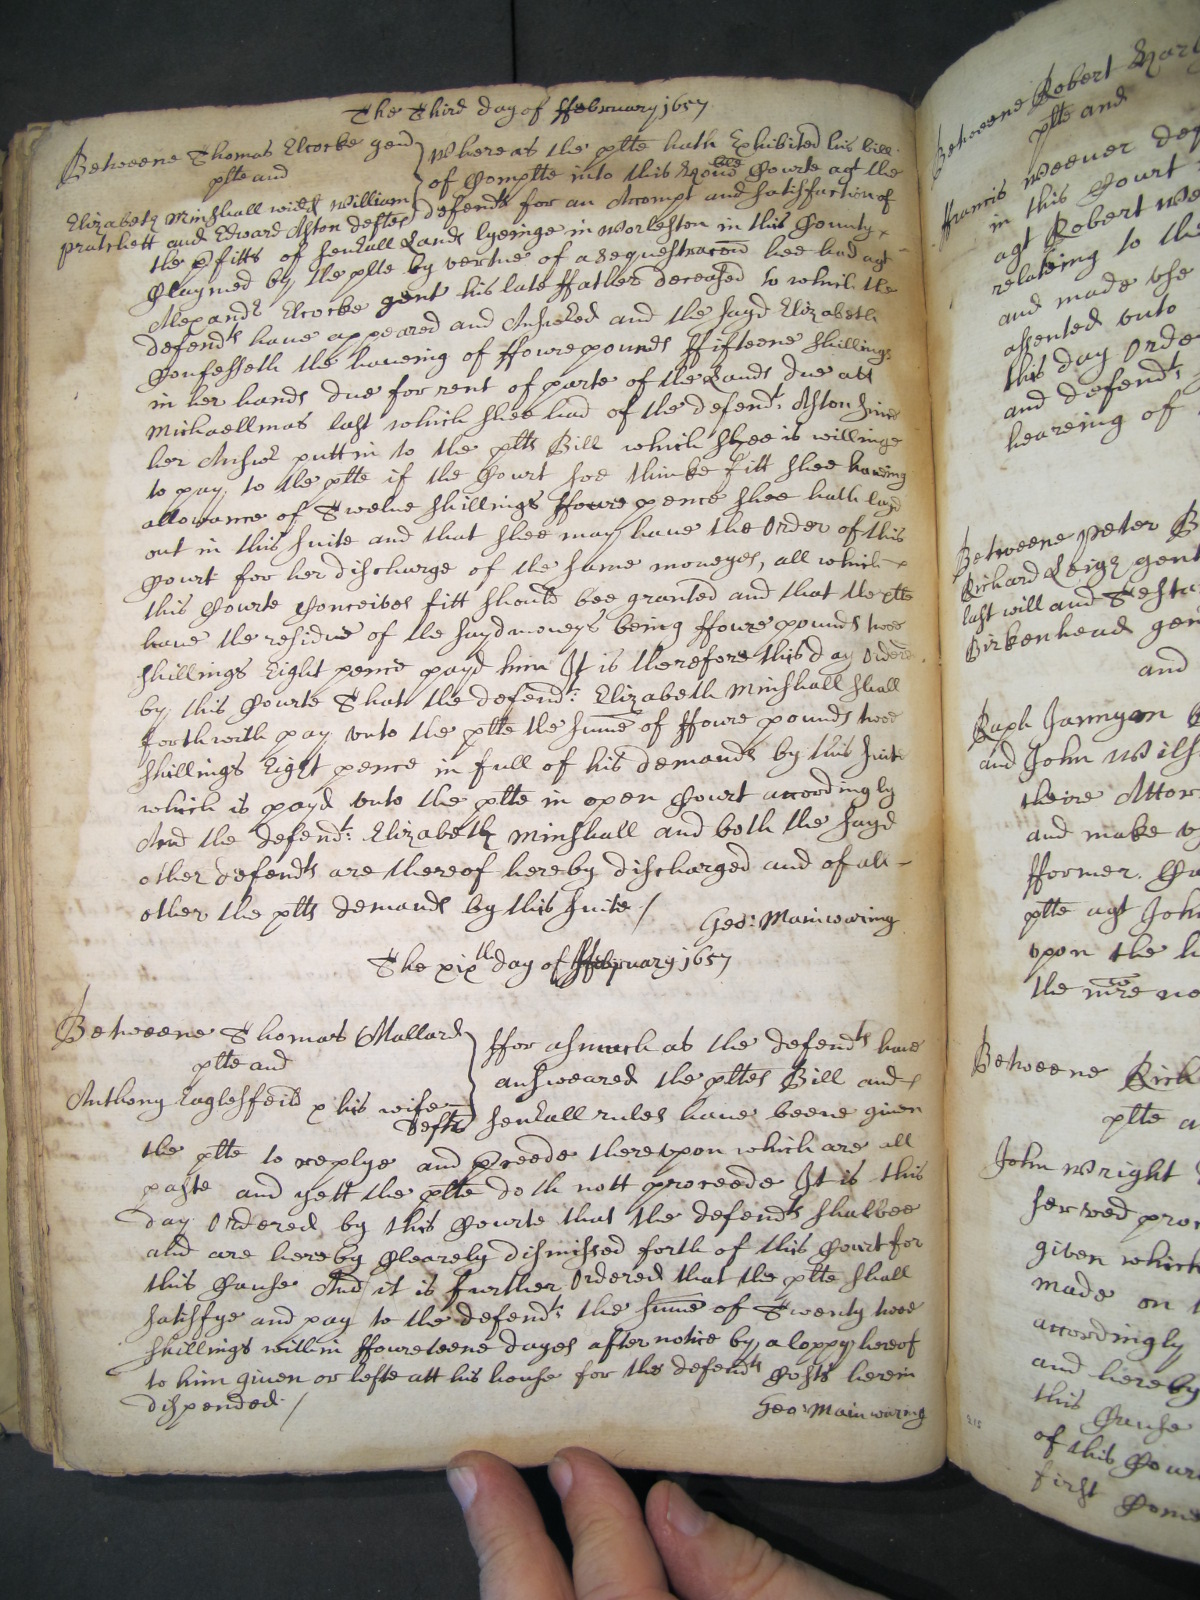 The Third day of ffebruary 1657
Betweene Thomas Elcocke gent
plte and
Elizabeth Minshall widd William
Pratchett and Edward Aston deftes
Whereas the plte hath Exhibited his bill
of Complte into this Honoble Courte agt the
defendts for an Accompt and satisfaction of
the pfitts of seuerall Lands lyeinge in Worleston in this County
Claymed by the plte by vertue of a sequestracon hee had agt
Alexandr Elcocke gent his late ffather deceased to which the
defendts haue appeared and Answered and the sayd Elizabeth
Confesseth the haueing of ffoure pounds ffifteene shillings
in her hands due for rent of parte of the Lands due att
Michaellmas last which shee had of the defendt Aston since
her Answr putt in to the plts Bill which shee is willinge
to pay to the plte if the Court soe thinke fitt shee haveing
allowance of Twelve shillings ffoure pence shee hath layd
out in this suite and that shee may haue the Order of this
Court for her discharge of the same moneyes, all which
this Courte Conceives fitt should bee granted and that the plte
haue the residue of the sayd moneys being ffoure pounds twoe
shillings Eight pence payd him It is therefore this day Ordered
by this Courte That the defendt: Elizabeth Minshall shall
forthwith pay vnto the plte the sume of ffoure pounds twoe
shillings Eight pence in full of his demands by this suite
which is payd vnto the plte in open Court accordingly
And the defendt: Elizabeth Minshall and both the sayd
other defendts are thereof hereby discharged and of all
other the plts demands by this suite /
Geo: Mainwaring
The xixth day of ffebruary 1657
Betweene Thomas Mallard
plte and
Anthony Eaglesfeild & his wife
Defts
fforasmuch as the defendts haue
answeared the pltes Bill and
seuerall rules haue beene given
the plte to replye and pceede therevpon which are all
paste and yett the plte doth nott proceede It is this
day Ordered by this Courte that the defendts shalbee
and are hereby Clearely dismissed forth of this Court for
this Cause And it is further Ordered that the plte shall
satisfye and pay to the defendts the sume of Twenty twoe
shillings within ffoureteene dayes after notice by a Coppy hereof
to him given or lefte att his house for the defendts Costs herein
dispended /
Geo: Mainwaring
Betweene Robert
plte and
ffrancis Weever
in this Court
agt Robert
relateing to the
and made the
assented vnto
this day Orde
and defendts
heareing of
Betweene Peter
Richard Leigh gent
last will and Testa
Birkenhead gen
and
Raph Jannyon
and John Wils
theire Attor
and make
fformer
plte agt John
vpon the
the
Betweene Rich
plte a
John Wright
served proc
given which
made on
accordingly
and hereby
this Cause
of this Cour
first